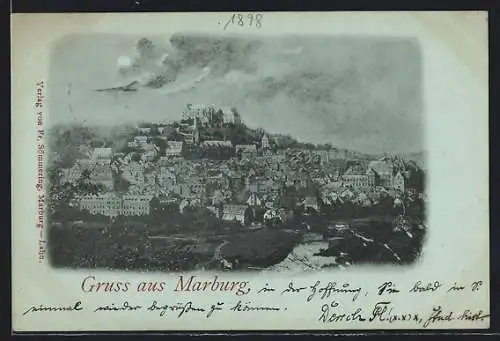 1898
Verlag von Fr. Sömmering, Marburg – Lahn.
Gruss aus Marburg, in der Hoffnung, Sie bald in S.
einmal wieder begrüßen zu können.